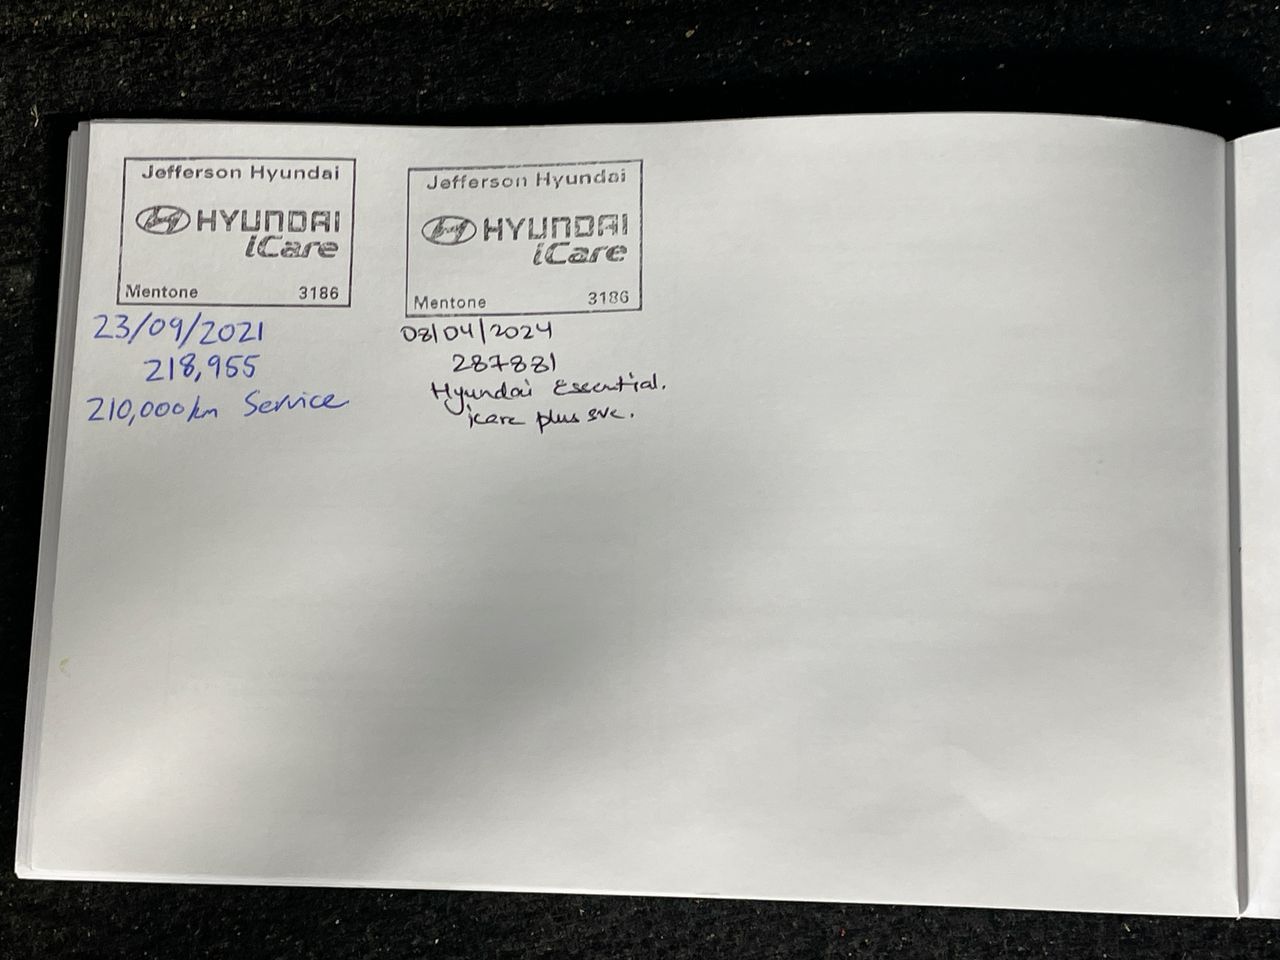 Jefferson Hyundai
HYUNDAI
iCare
Mentone 3186
23/09/2021
218,955
210,000km Service
Jefferson Hyundai
HYUNDAI
iCare
Mentone 3186
08/04/2024
287881
Hyundai Essential.
icare plus svc.